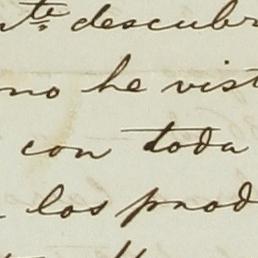 te descubr
no he vist
con toda
los prod